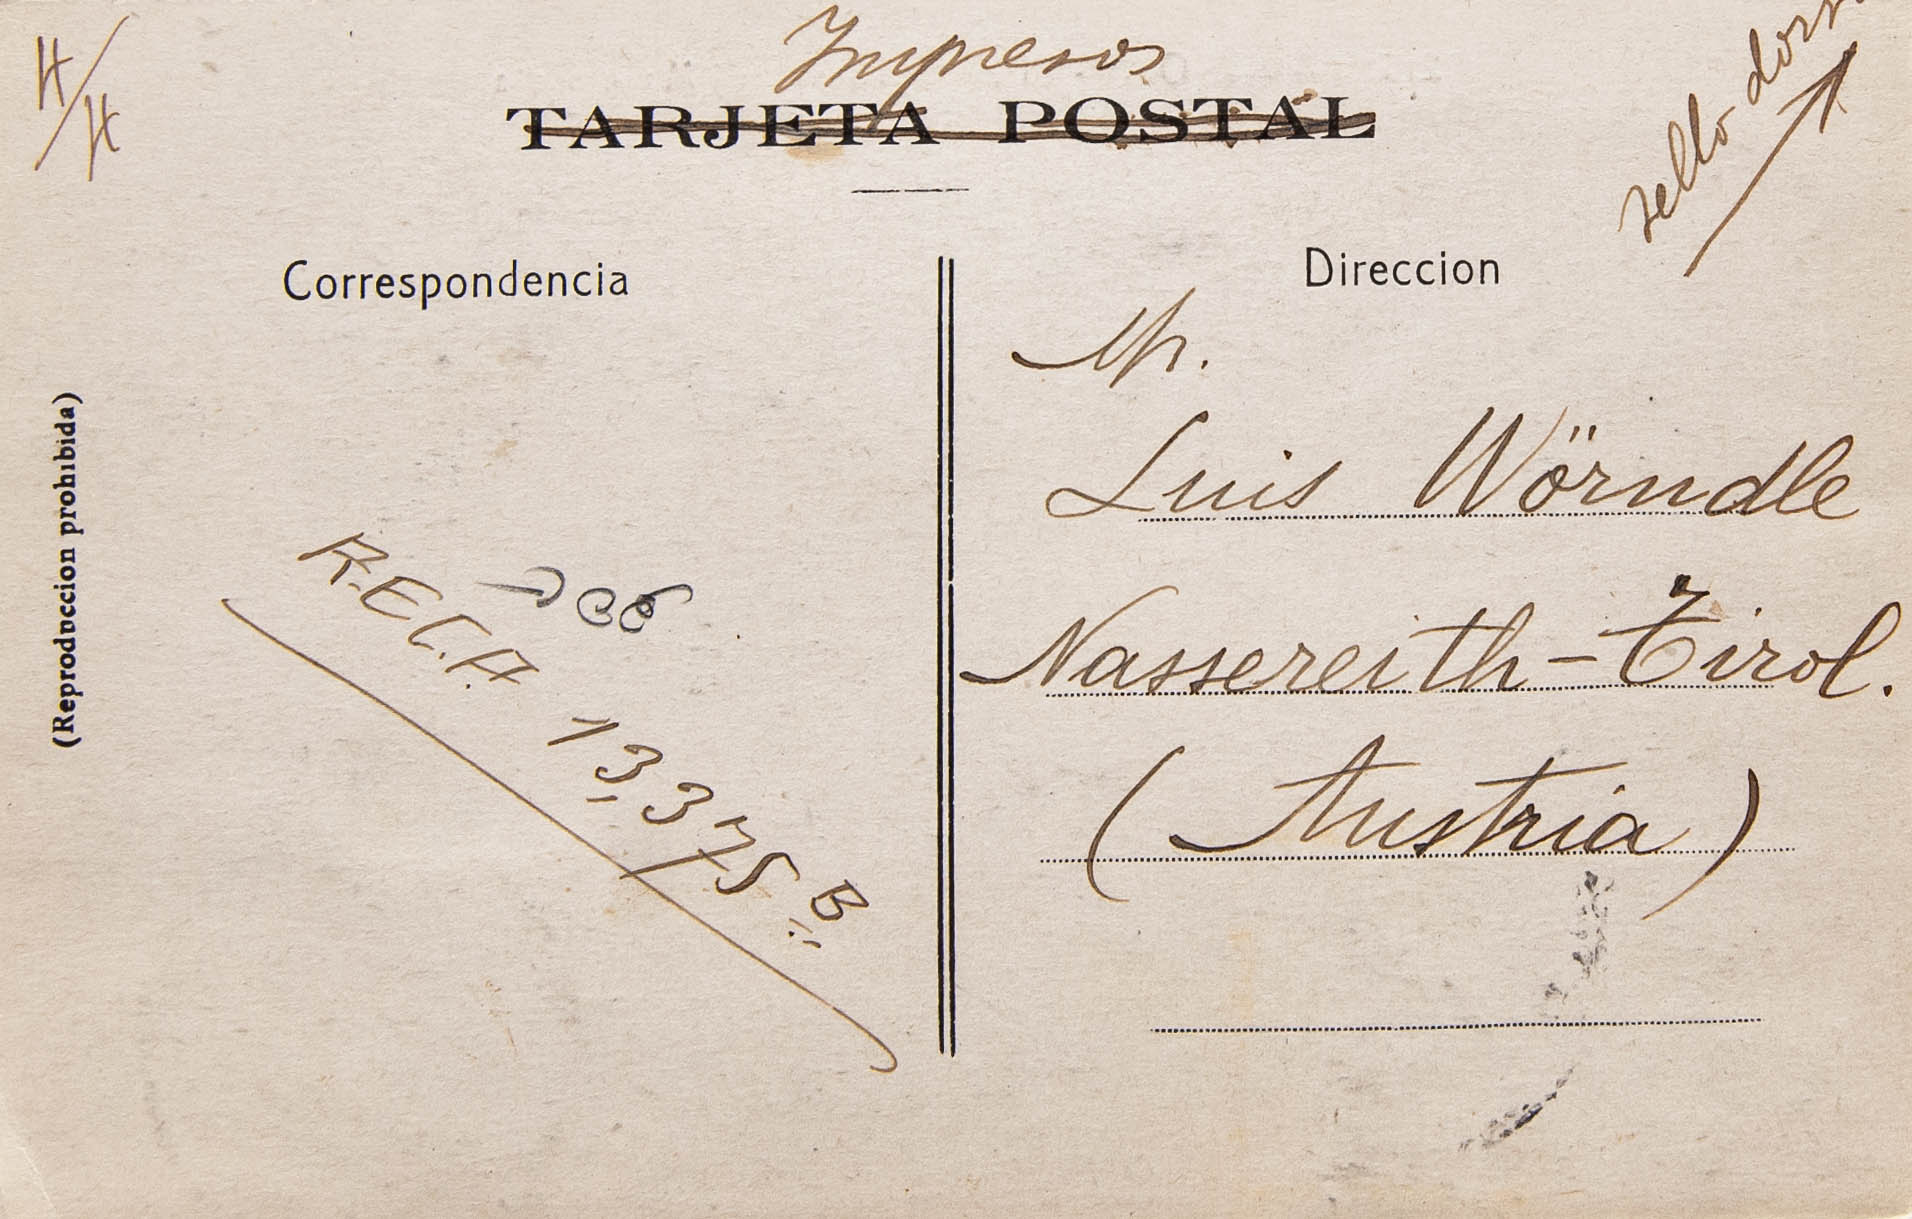 Impresos
TARJETA POSTAL
sello
Correspondencia
Direccion
(Reproduccion prohibida)
Luis Wörndle
Nassereith - Tirol.
(Austria)
13375 B